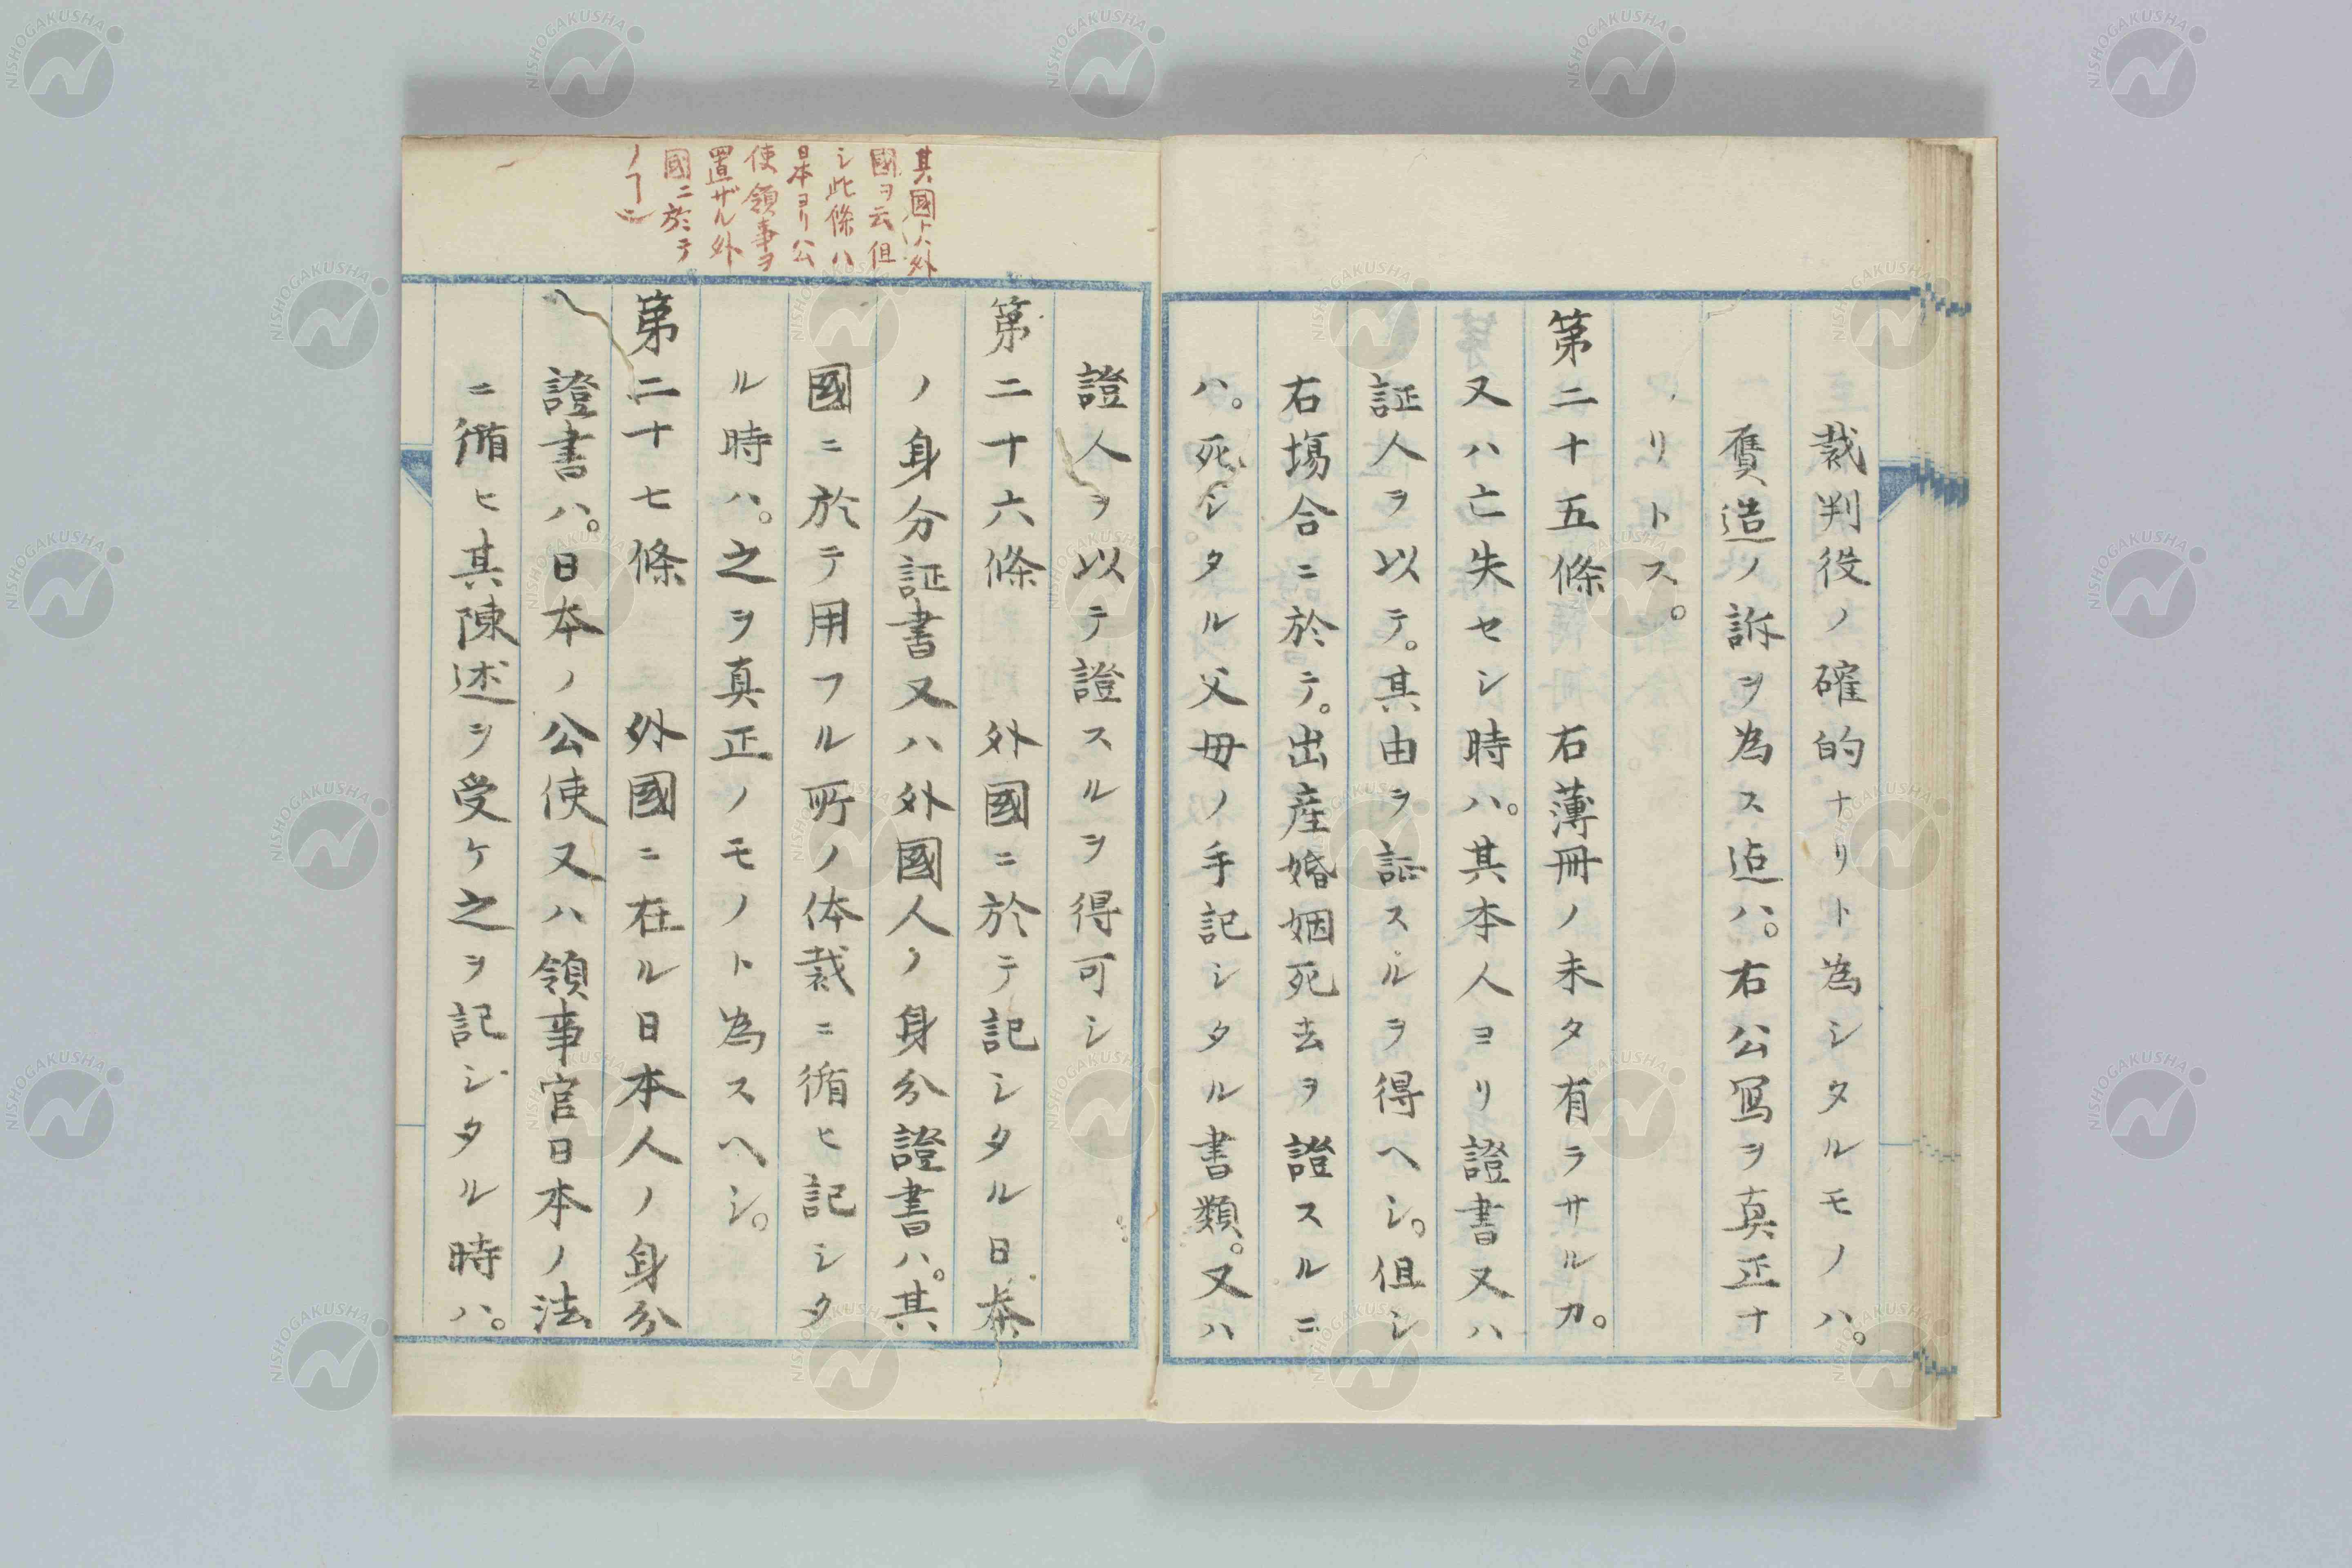 裁判役ノ確的ナリト為シタルモノハ。
贋造ノ訴ヲ為ス迠ハ。右公冩ヲ真正ナ
リトス。
第二十五條　右薄冊ノ未タ有ラサルカ。
又ハ亡失セシ時ハ。其本人ヨリ證書又ハ
証人ヲ以テ。其由ヲ証スルヲ得ヘシ。但シ
右塲合ニ於テ。出産婚姻死去ヲ證スルニ
ハ。死シタル父毋ノ手記シタル書類。又ハ
其國
國ヲ云但
シ此條ハ
日本ヨリ公
使領事ヲ
置ザル外
國ニ於テ
證人ヲ以テ證スルヲ得可シ
第二十六條　外國ニ於テ記シタル日本
ノ身分証書又ハ外國人ノ身分證書ハ。其
國ニ於テ用フル所ノ体裁ニ循ヒ記シタ
ル時ハ。之ヲ真正ノモノト為スヘシ。
第二十七條　外國ニ在ル日本人ノ身分
證書ハ。日本ノ公使又ハ領事官日本ノ法
ニ循ヒ其陳述ヲ受ケ之ヲ記シタル時ハ。
NISHOGAKUSHA